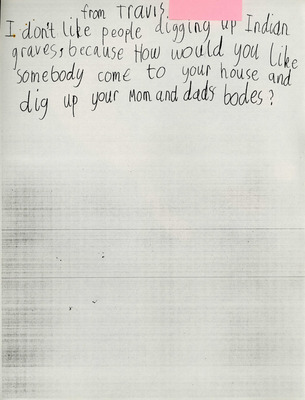 from Travis.
I don't like people digging up Indian
graves, because How would you like
somebody come to your house and
dig up your Mom and dads bodes?